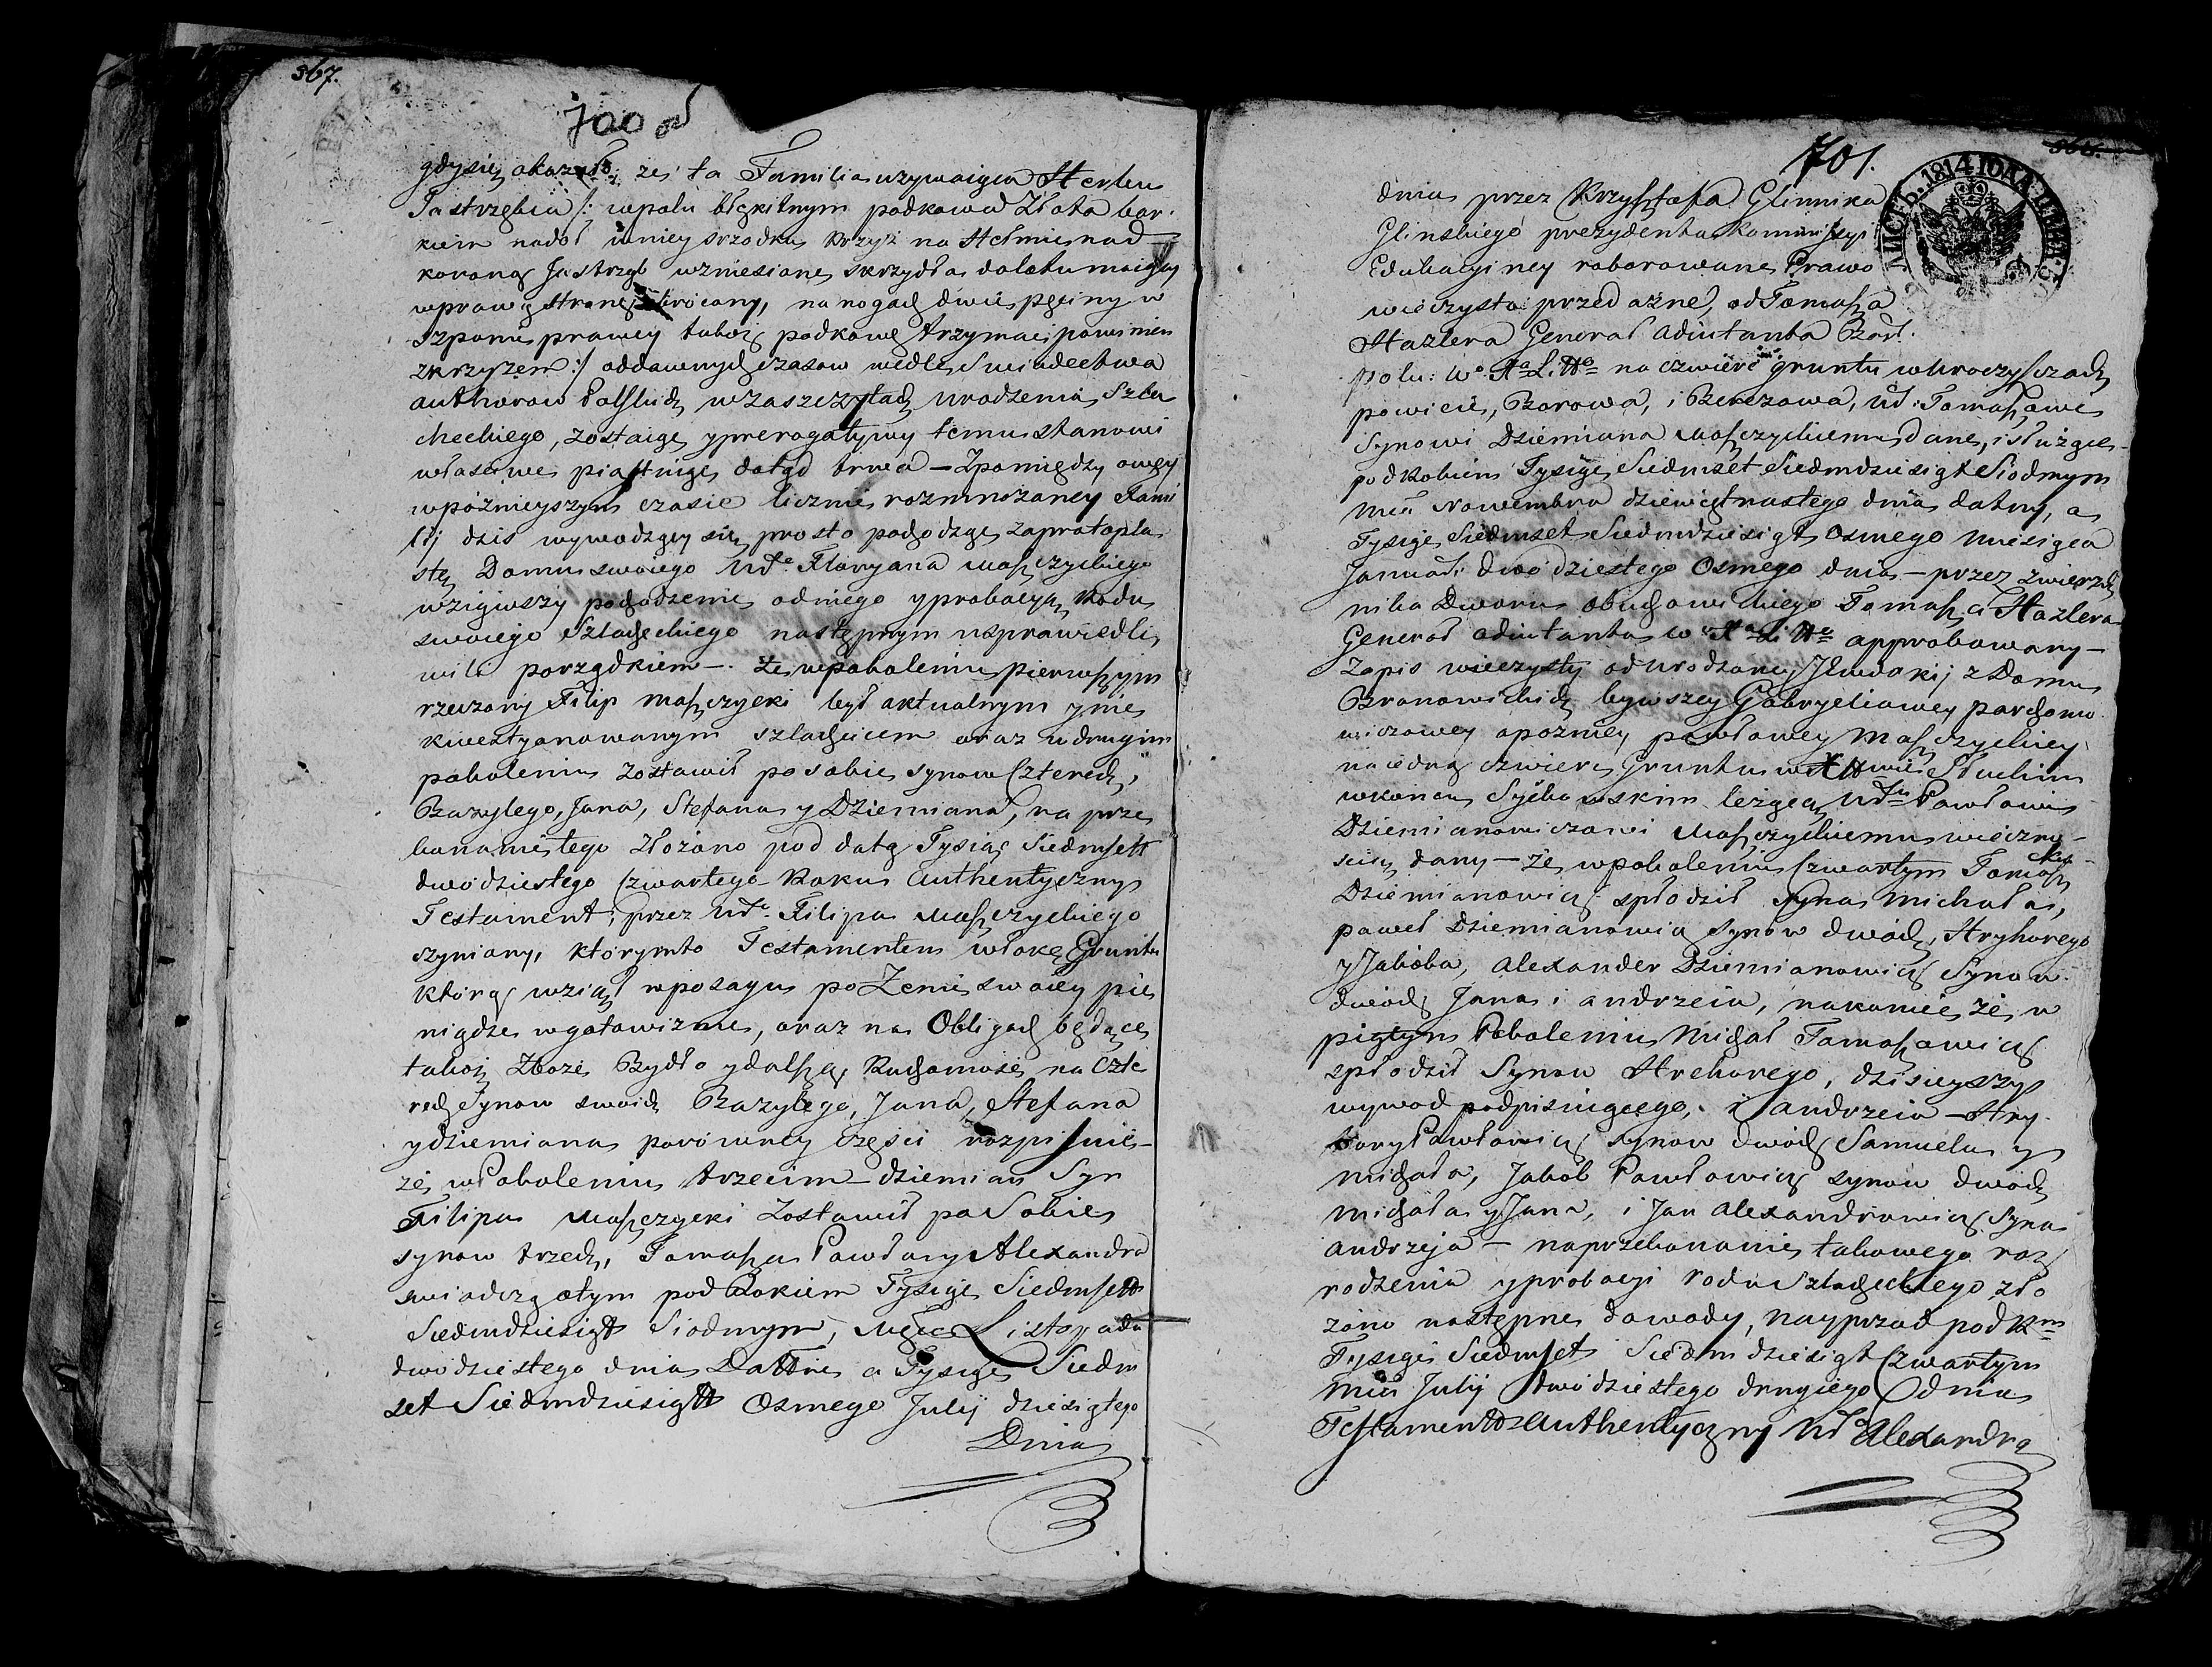 367.
700
gdy się okazało; że ta Familia uzywaiąca Herbu
Jastrzębia /: wpolu błękitnym podkowa Złota bar-
kiem nadoł wniey srzodku Krzyż na Hełmie nad
koroną Jastrząb wzniesione skrzydła do lotu maiący
wprawą stronę obrócony, na nogach dwie pęciny w
szponie prawey takoż podkowę trzymać powinien
zkrzyżem :/ oddawnych czasow wedle Swiadectwa
authorow Polskich w zaszczytach urodzenia Szla-
checkiego, zostaiąc y prerogatywy temu stanowi
własciwe piastuiąc dotąd trwa — Zpomiędzy owey
wpóznieyszym czasie licznie rozmnożoney Fami
lii dzis wywodzący się prosto pochodzą za protopla
stę Domu swoiego Urode. Floryana Maszczyckiego
wziąwszy pochodzenie odniego y probacyą Rodu
swoiego Szlacheckiego następnym usprawiedli
wili porządkiem —. Że wpokoleniu pierwszym
rzeczony Filip Maszczycki był aktualnym y nie
kwestyonowanym szlachcicem oraz w drugim
pokoleniu zostawił po sobie synow Czterech,
Bazylego, Jana, Stefana y Dziemiana, na prze
konanie tego złożono pod datą Tysiąc Siedmset
dwódziestego Czwartego Roku Authentyczny
Testament; przez Urode. Filipa Maszczyckiego
czyniony, którymto Testamentem włokę Gruntu
którą wziął wposagu po Żenie swoiey pie
niądze wgotowiznie, oraz na Obligach będące
takoż Zboże Bydło y dalszą Ruchomość na Czte
rech Synow swoich Bazylego, Jana, Stefana
y dziemiana porówney części rozpisuie —
że w Pokoleniu trzecim dziemian Syn
Filipa Maszczycki zostawił po Sobie
synow trzech, Tomasza Pawła y Alexandra
swiadczą o tym pod Rokiem Tysiąc Siedmset
Siedmdziesiąt Siodmym, Mca Listopada
dwódziestego dnia Datne a Tysiąc Siedm
set Siedmdziesiąt Osmego Julij dziesiątego
Dnia
701.
ЛИСТЬ. 1814 ГОДА
dnia przez Krzysztofa Glinnika
Glinskiego prezydenta Kommissyi
Edukacyiney roborowane Prawo
wieczysto przedażne, od Tomasza
Hazlera Generał Adiutanta
na czwierć gruntu wuroczyszczach
powicie, Borowa, i Berezowa, Ur. Tomaszowi
Synowi Dziemiana Maszczyckiemu dane, i służące —
pod Rokiem Tysiąc Siedmset Siedmdziesiąt Siodmym
Mca Nowembra dziewiętnastego dnia datny, a
Tysiąc Siedmset Siedmdziesiąt Osmego miesiąca
Januarii dwódziestego Osmego dnia — przez zwierzch
nika Dworu obuchowickiego Tomasza Hazlera
Generał adiutanta approbowany —
Zapis wieczysty od urodzoney Jewdokij z Domu
Bronowickich bywszey Gabryeliowey parchomo
wiczowey apozniey pawłowey Maszczyckiey,
na iedną czwierć Gruntu Słuckim
wkońcu Syckowskim leżącą Pawłowi
Dziemianowiczowi Maszczyckiemu wieczno-
scią dany — że wpokoleniu Czwartym Tomasz
Dziemianowicz spłodził syna Michała,
paweł Dziemianowicz synow dwóch, Hryhorego
y Jakóba, Alexander Dziemianowicz Synow
dwóch Jana i andrzeia, nakoniec że w
piątym Pokoleniu Michał Tomaszowicz
spłodził Synow Hrehorego, dzisieyszy
wywod podpisuiącego, i andrzeia — Hry
hory Pawłowicz synow dwóch Samuela y
michała, Jakób Pawłowicz synow dwóch
michała y Jana, i Jan Alexandrowicz Syna
andrzeja — na przekonanie takowego roz
rodzenia y probacyi rodu Szlacheckiego zło
żono następne dowody, nayprzod pod Rm
Tysiąc Siedmset Siedmdziesiąt Czwartym
Mca Julij dwódziestego drugiego dnia
Testament authentyczny Alexandra